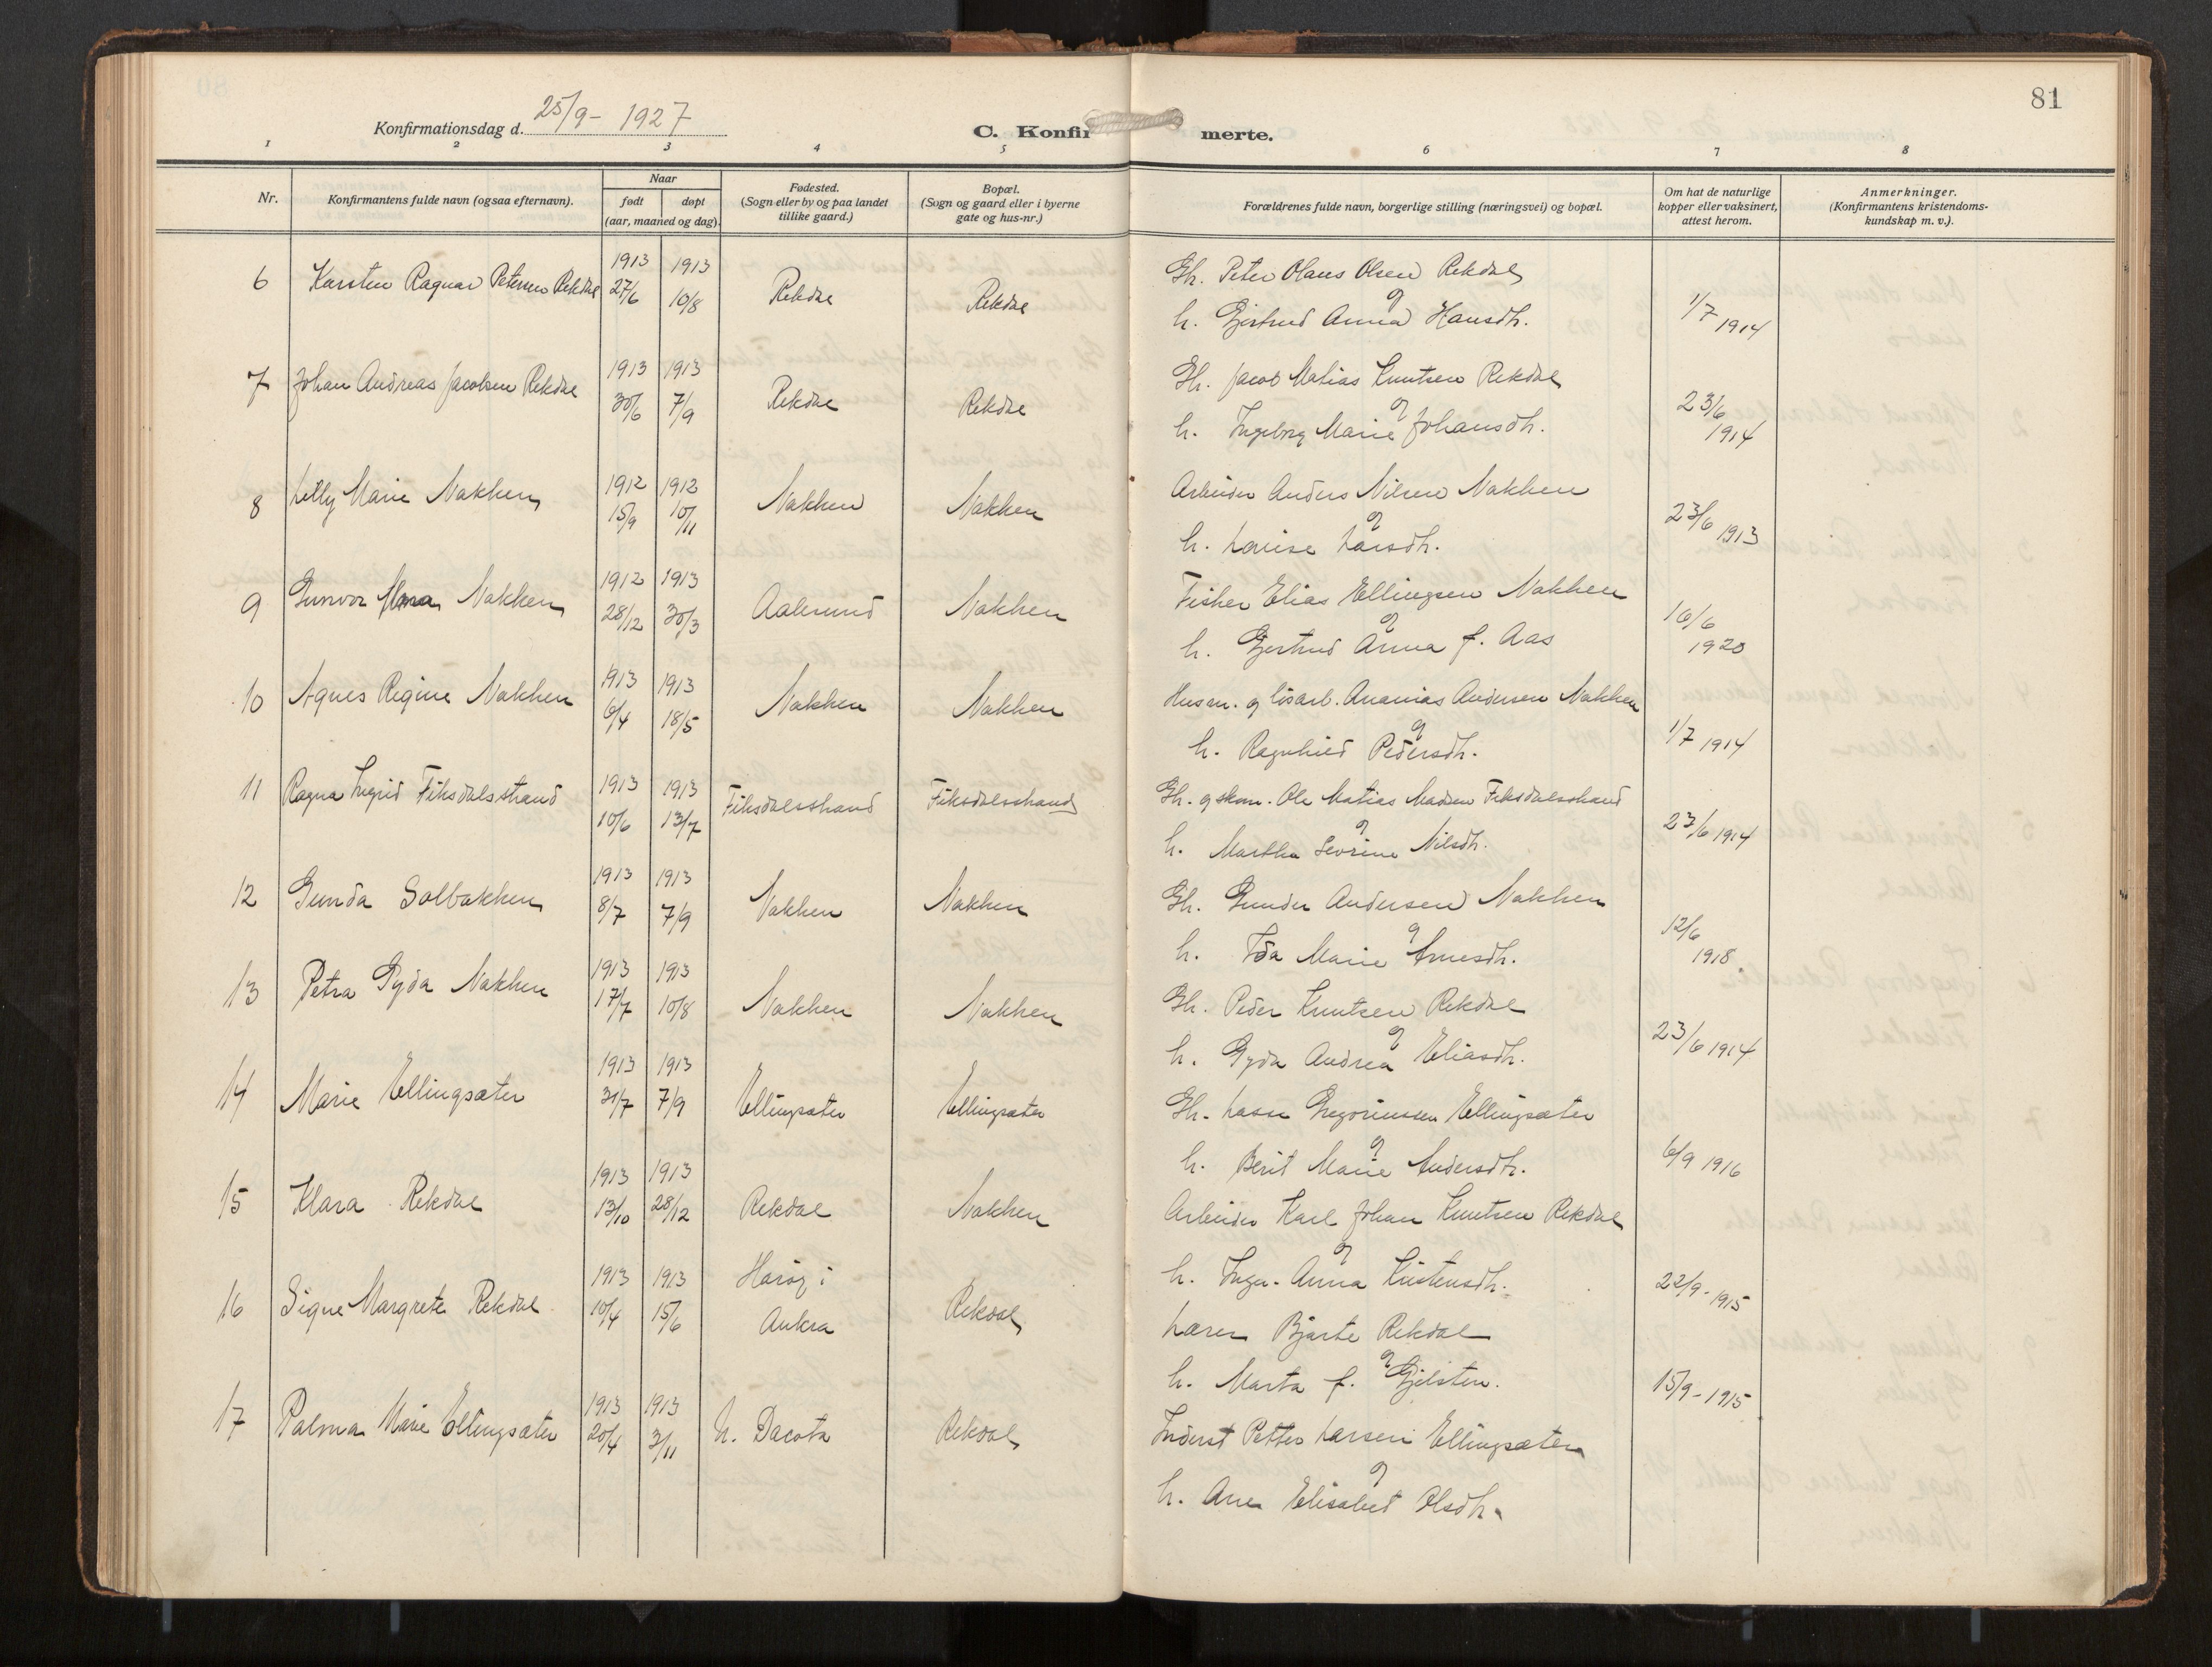 81
Konfirmationsdag d. 25/9 - 1927
C. Konfir merte.
1 2 3 4 5 6 7 8
Nr.
Konfirmantens fulde navn (ogsaa efternavn).
Naar
født døpt
(aar, maaned og dag).
Fødested.
(Sogn eller by og paa landet
tillike gaard.)
Bopæl.
(Sogn og gaard eller i byerne
gate og hus-nr.)
Forældrenes fulde navn, borgerlige stilling (næringsvei) og bopæl.
Om hat de naturlige
kopper eller vaksinert,
attest herom.
Anmerkninger.
(Konfirmantens kristendoms-
kundskap m. v.).
6 Karsten Ragnar Petersen Rekdal 1913 27/6 1913 10/8 Rekdal Rekdal
Gh. Peter Olaus Olsen Rekdal
og
h. Gjertrud Anna Hansdh.
1/7 1914
7 Johan Andreas Jacobsen Rekdal 1913 30/6 1913 7/9 Rekdal Rekdal
Gh. Jacob Matias Knutsen Rekdal
og
h. Ingeborg Marie Johansdh.
23/6 1914
8 Lilly Marie Nakken 1912 15/9 1912 10/11 Nakken Nakken
Arbeider Anders Nilsen Nakken
og
h. Louise Larsdh.
23/6 1913
9 Gunvor Nakken 1912 28/12 1913 30/3 Aalesund Nakken
Fisker Elias Ellingsen Nakken
og
h. Gjertrud Anna f. Aas
16/6 1920
10 Agnes Regine Nakken 1913 6/4 1913 18/5 Nakken Nakken
Husm. og løsarb. Ananias Andersen Nakken
og
h. Ragnhild Pedersdh.
1/7 1914
11 Ragna Ingrid Fiksdalsstrand 1913 10/6 1913 13/7 Fiksdalsstrand Fiksdalsstrand
Gh. og skom. Ole Matias Madsen Fiksdalsstrand
og
h. Martha Sevrine Nilsdh.
23/6 1914
12 Gunda Solbakken 1913 8/7 1913 7/9 Nakken Nakken
Gh. Gunder Andersen Nakken
og
h. Ida Marie Arnesdh.
12/6 1918.
13 Petra Gyda Nakken 1913 17/7 1913 10/8 Nakken Nakken
Gh. Peder Knutsen Rekdal
og
h. Gyda Andrea Eliasdh.
23/6 1914
14 Marie Ellingsæter 1913 31/7 1913 7/9 Ellingsæter Ellingsæter
Gh. Lasse Gregoriussen Ellingsæter
og
h. Berit Marie Andersdh.
6/9 1916
15 Klara Rekdal 1913 13/10 1913 28/12 Rekdal Nakken
Arbeider Karl Johan Knutsen Rekdal
og
h. Inga Anna Kristensdh.
22/9 - 1915
16 Signe Margrete Rekdal 1913 10/4 1913 15/6 Harøy i Aukra Rekdal
Lærer Bjarte Rekdal
og
h. Marta f. Gjelsten.
15/9 - 1915
17 Palma Marie Ellingsæter 1913 20/4 1913 3/11 N. Dacota Rekdal
Inderst Petter Larsen Ellingsæter
og
h. Ane Elisabet Olsdh.